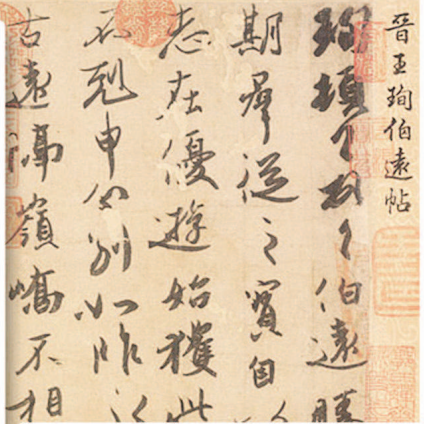 晉王珣伯遠帖
珣頓々首々伯遠勝
期羣從之寶自
志在優遊始獲此
不剋申分別如昨
古遠隔嶺嶠不相